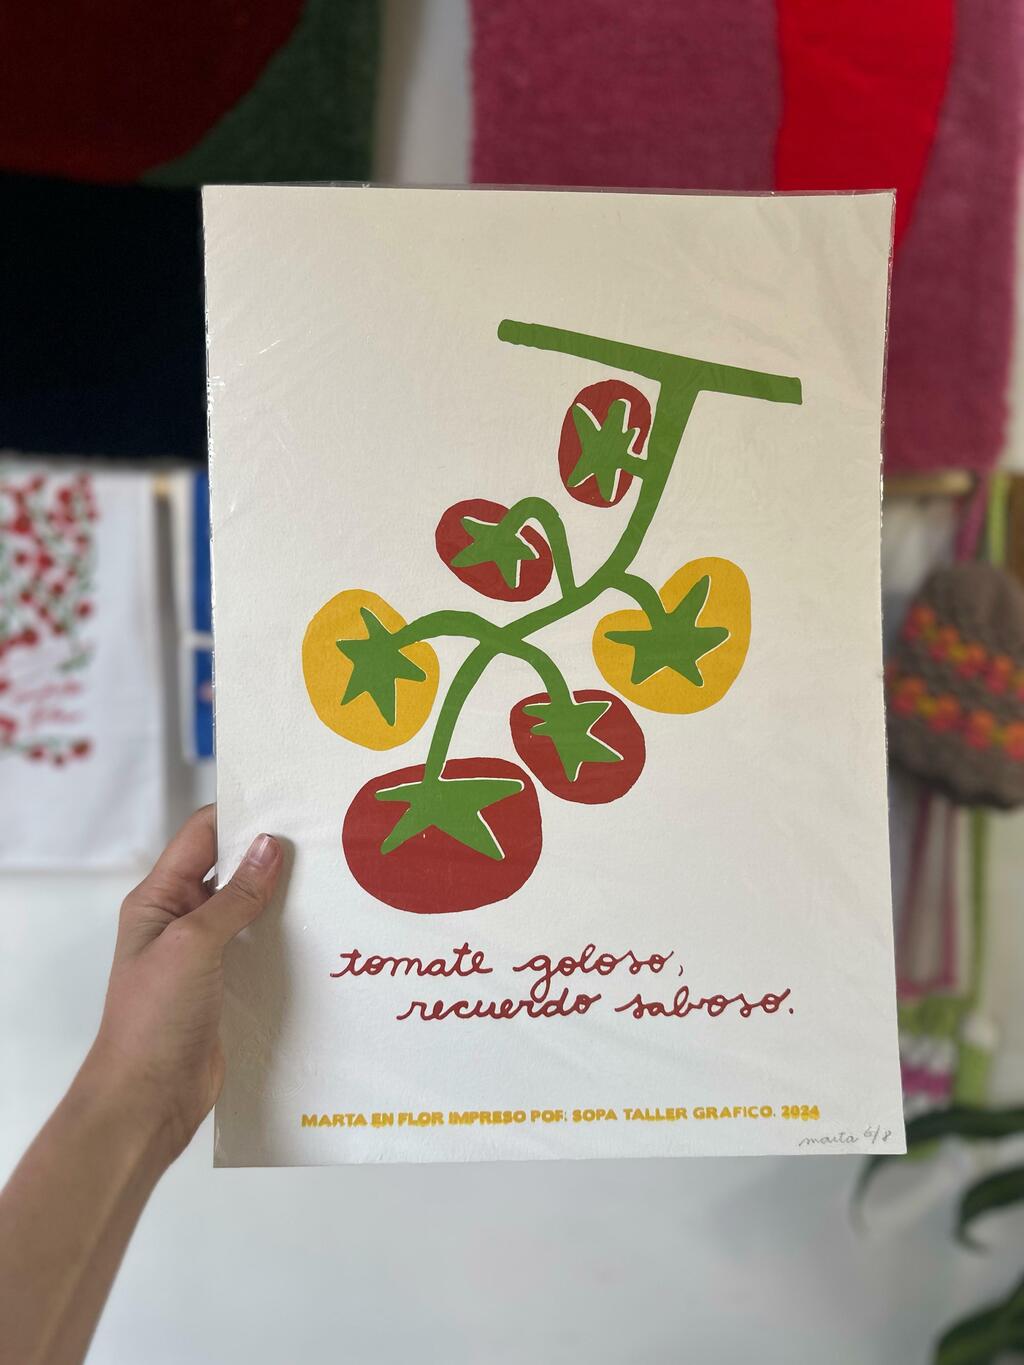 tomate goloso,
recuerdo sabroso.
MARTA EN FLOR IMPRESO POR: SOPA TALLER GRAFICO. 2024
marta 6/8